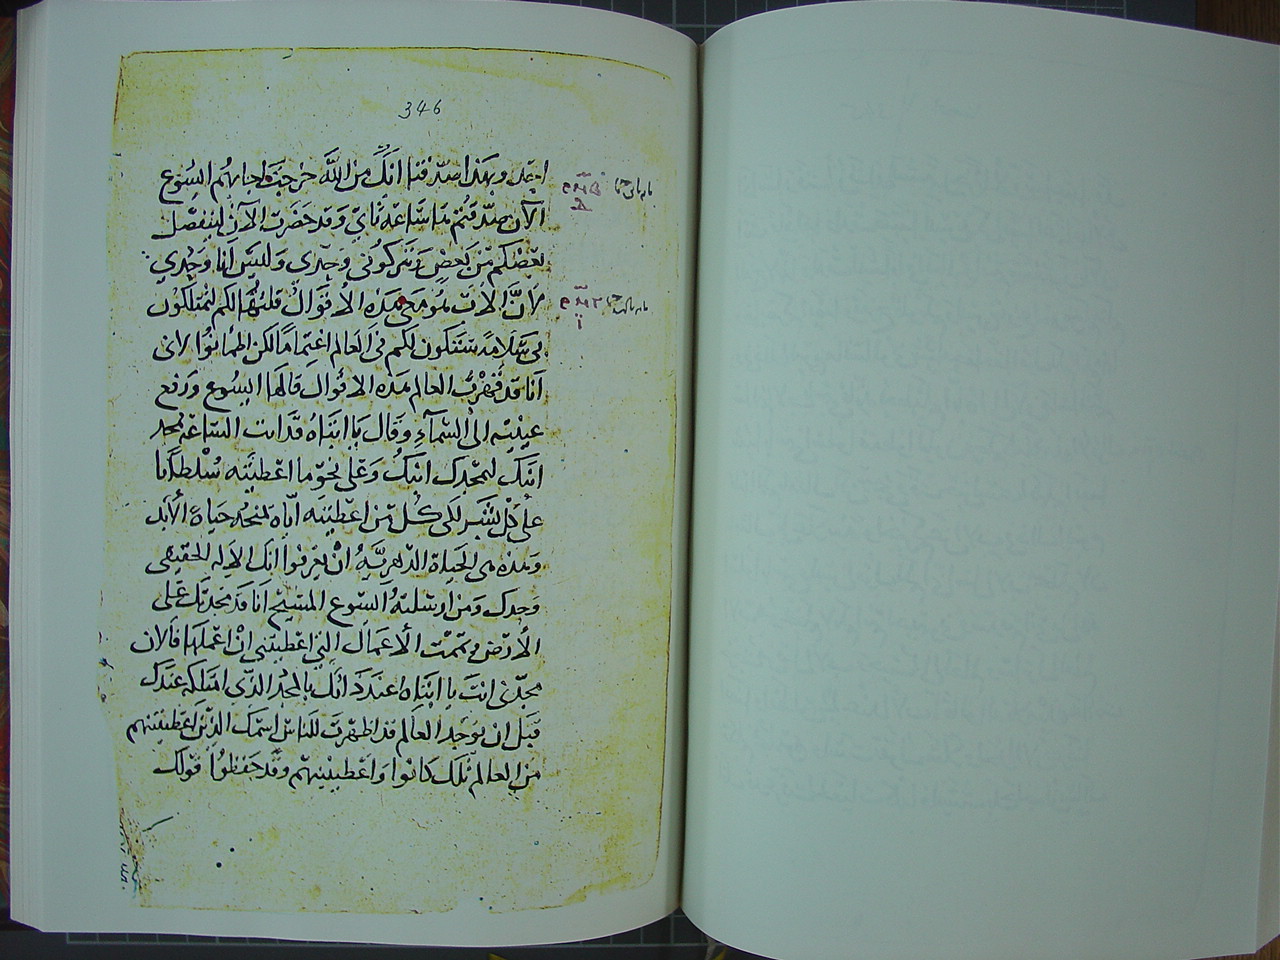 346
احد وبهذا صدقنا انك من الله خرجت اجابهم اليسوع
الآن صدقتم ستأتي ساعة وقد حضرت الآن ليتفصل
بعضكم من بعض وتتركوني وحدي وليس انا وحدي
لأن الاب هو معي هذه الاقوال قلتها لكم لتمتلكون
بي سلامة ستكون لكم في العالم اغتماما لكن اطمانوا لاني
انا قد قهرت العالم هذه الاقوال قالها اليسوع ورفع
عينيه الى السماء وقال يا ابتاه قد اتت الساعة مجد
ابنك ليمجدك ابنك وعلى نحو ما اعطيته سلطانا
على كل بشر لكى كل من اعطيته اياه يمنحه حياة الأبد
وهذه هي الحياة الدهرية ان يعرفوا انك الاله الحقيقى
وحدك ومن ارسلته اليسوع المسيح انا قد مجدتك على
الأرض تممت الاعمال التي اعطيتني ان اعملها فالان
مجدني انت يا ابتاه عند ذاتك بالمجد الذي امتلكه عندك
قبل ان يوجد العالم قد اظهرت للناس اسمك الذين اعطيتنيهم
من العالم لك كانوا واعطيتنيهم وقد حفظوا قولك